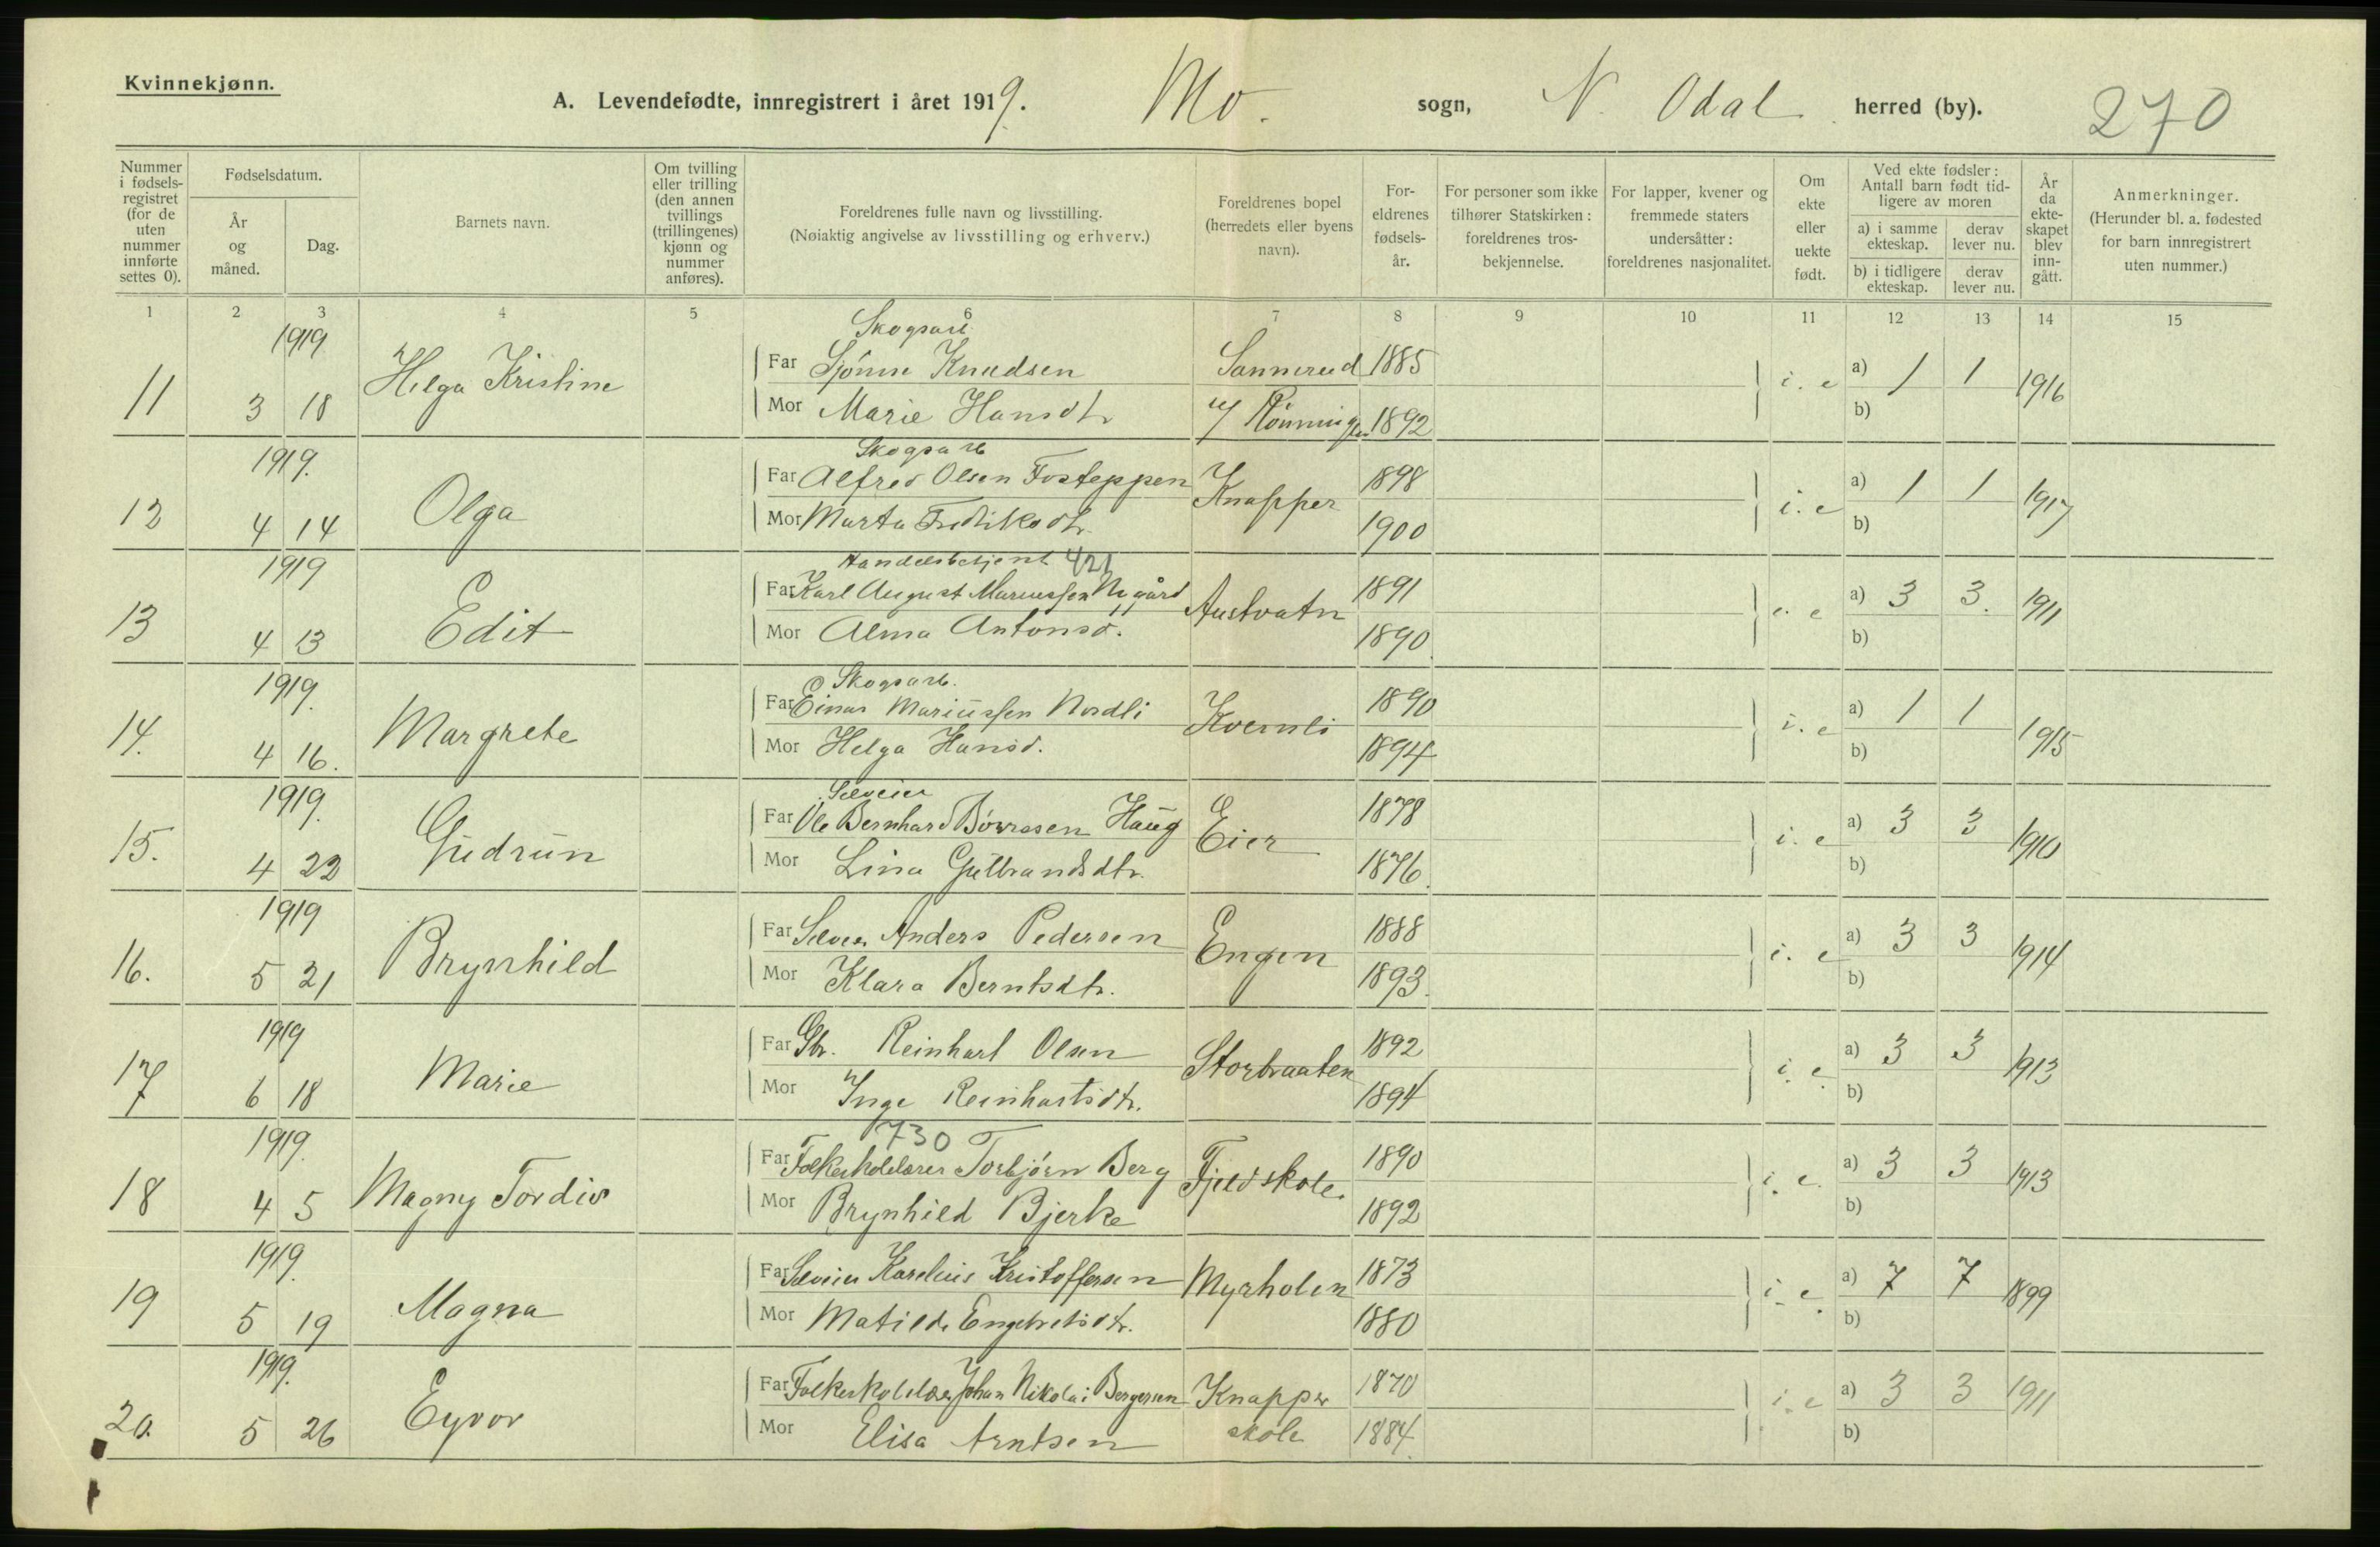 Kvinnekjønn.
A. Levendefødte, innregistrert i året 1919. Mo. sogn, N. Odal herred (by). 270
Nummer i fødselsregistret (for de uten nummer innførte settes 0).
Fødselsdatum.
År og måned.
Dag.
Barnets navn.
Om tvilling eller trilling (den annen tvillings (trillingenes) kjønn og nummer anføres).
Foreldrenes fulle navn og livsstilling.
(Nøiaktig angivelse av livsstilling og erhverv.)
Foreldrenes bopel (herredets eller byens navn).
Foreldrenes fødselsår.
For personer som ikke tilhører Statskirken: foreldrenes trosbekjennelse.
For lapper, kvener og fremmede staters undersåtter: foreldrenes nasjonalitet.
Om ekte eller uekte født.
Ved ekte fødsler: Antall barn født tidligere av moren
a) i samme ekteskap.
derav lever nu.
b) i tidligere ekteskap.
derav lever nu.
År da ekteskapet blev inngått.
Anmerkninger.
(Herunder bl. a. fødested for barn innregistrert uten nummer.)
1 2 3 4 5 6 7 8 9 10 11 12 13 14 15
1919 Skogsarb.
Far Knudsen Sannerud 1885
11 3 18 Helga Kristine i. e a) 1 1 1916
Mor Marie Hansdtr 1892 b)
1919. Skogsarb
Far Alfred Olsen Fosteppen Knapper 1898
12 4 14 Olga i. e a) 1 1 1917
Mor Marta Fredriksdtr. 1900 b)
1919 Handelsbetjent 421
Far Karl August Mariussen Nygård Austvatn 1891
13 4 13 Edit i. e a) 3 3. 1911
Mor Alma Antonsd. 1890. b)
1919. Skogsarb.
Far Einar Mariussen Nordli Kvernli 1890
14. 4 16. Margrete i. e a) 1 1 1915
Mor Helga Hansd. 1894 b)
1919. Selveier
Far Ole Bernhard Børresen Haug Eier 1878
15. 4 22 Gudrun i. e a) 3 3 1910
Mor Lina Gulbrandsdtr. 1876. b)
1919
Far Selveier Anders Pedersen Engen 1888
16. 5 21 Brynhild i. e a) 3 3 1914
Mor Klara Berntsdtr. 1893. b)
1919
Far Gbr. Reinhart Olsen Storbraaten 1892
17 6 18 Marie i. e. a) 3 3 1913
Mor Inga Reinhartsdtr. 1894 b)
1919. 730
Far Folkeskolelærer Torbjørn Berg Fjeldskole. 1890
18 4 5 Magny Tordis i. e. a) 3 3 1913
Mor Brynhild Bjerke 1892 b)
1919.
Far Selveier Karelius Kristoffersen Myrholen 1873
19 5 19 Magna i. e. a) 7 7 1899
Mor Matilde Engebretsdtr. 1880 b)
1919.
Far Folkeskolelærer Johan Nikolai Bergersen Knapper 1870
20. 5 26 Eyvor i. e a) 3 3 1911
Mor Elisa Arntsen skole 1884. b)